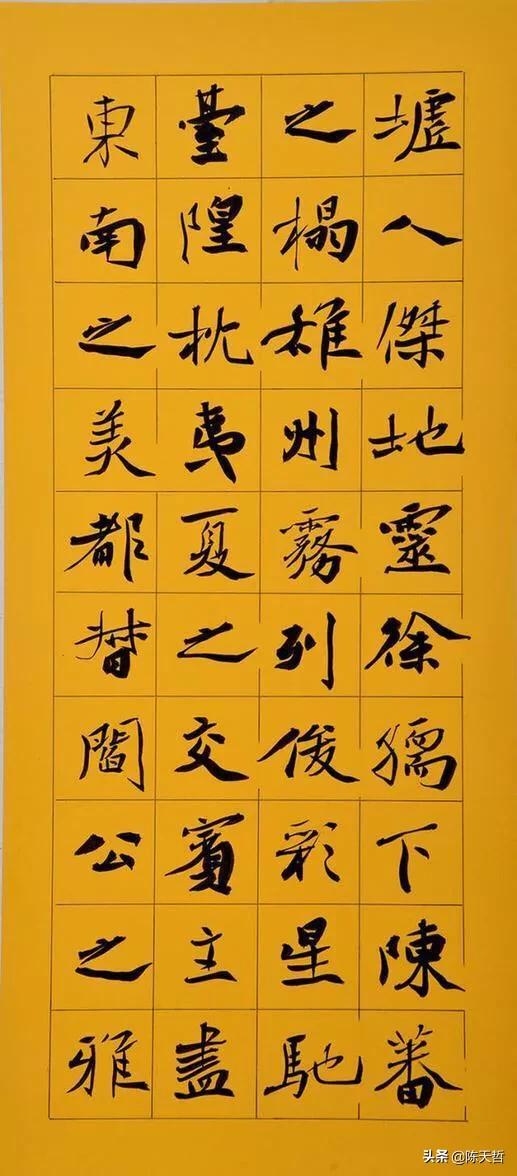 墟人傑地靈徐孺下陳蕃
之榻雄州霧列俊彩星馳
臺隍枕夷夏之交賓主盡
東南之美都督閻公之雅
头条 @陈天哲